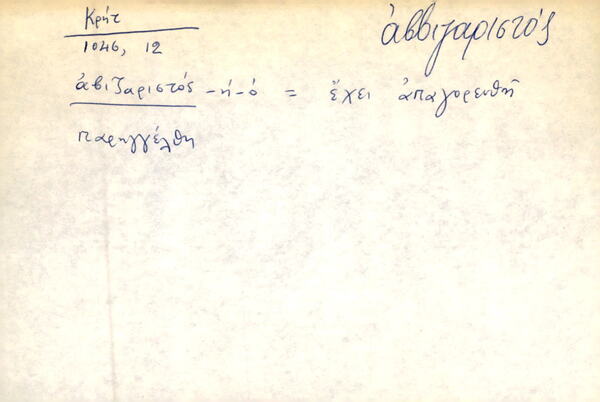 Κρήτ
ἀββιζαριστός
1046, 12
ἀβιζαριστός -ή-ό = ἔχει ἀπαγορευθῆ
παρηγγέλθη